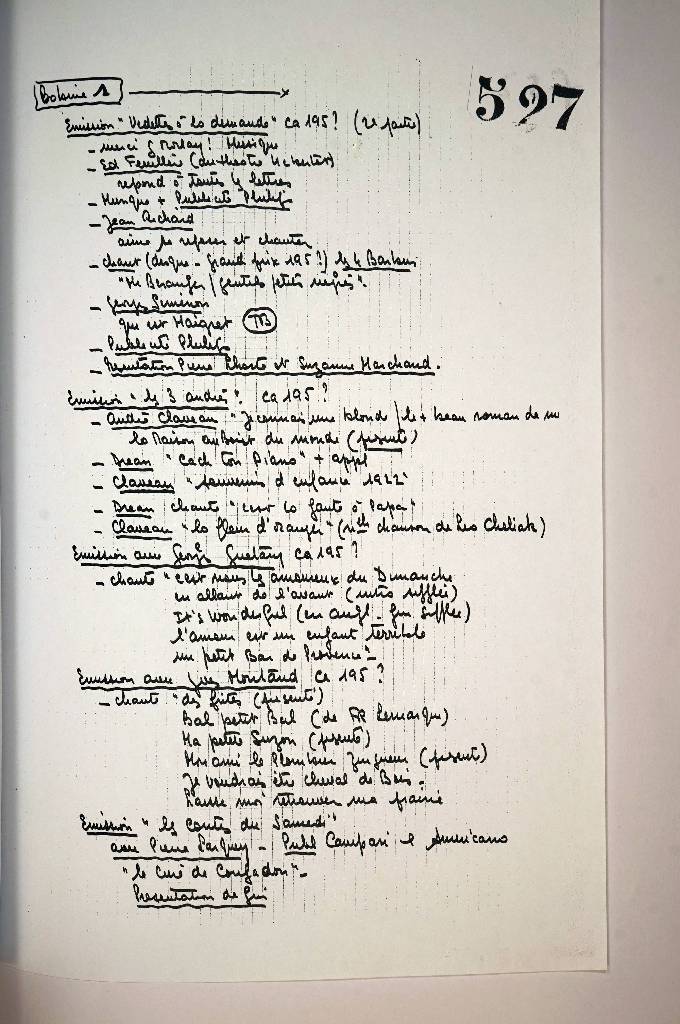 Bobine 1
597
Emission "Vedettes à la demande" ca 195? (2e partie)
- merci G Morlay! Musique
- Ed Feuillère (du théâtre
répond à toutes les lettres
- Musique + Publicité Philips
- Jean Richard
aime se reposer et chanter
- chant (disque - grand prix 195?) les 4 Barbus
"Mr Béranger / gentils petits nègres".
- Georges Simenon
qui est Maigret TB
- Publicité Philips
- Présentation Pierre Lhoste et Suzanne Marchand.
Emission "les 3 andré". ca 195?
- André Claveau "Je connais une blonde / le + beau roman de
la Maison au Bout du monde (présenté)
- Dréan "Cach' ton Piano" + appl
- Claveau "souvenirs d'enfance 1922"
- Dréan chante "c'est la faute à Papa"
- Claveau "la fleur d'oranger" (chanson de Leo Cheliak)
Emission avec Georges Guétary ca 195?
- chante "c'est nous les amoureux du Dimanche
en allant de l'avant (intro sifflée)
It's Wonderful (en angl - fin sifflée)
l'amour est un enfant terrible
un petit Bar de Provence" -
Emission avec Yves Montand ca 195?
- chante "des fêtes (présenté)
Bal petit Bal (de FR Lemarque)
Ma petite Suzon (présenté)
Mon ami le Plombier Zingueur (présenté)
Je voudrais être cheval de Bois -
Laisse moi retrouver ma prairie
Emission "les contes du Samedi"
avec Pierre Larquey - Publ Campari l'Americano
"le Curé de Cucugnan" -
Présentation de